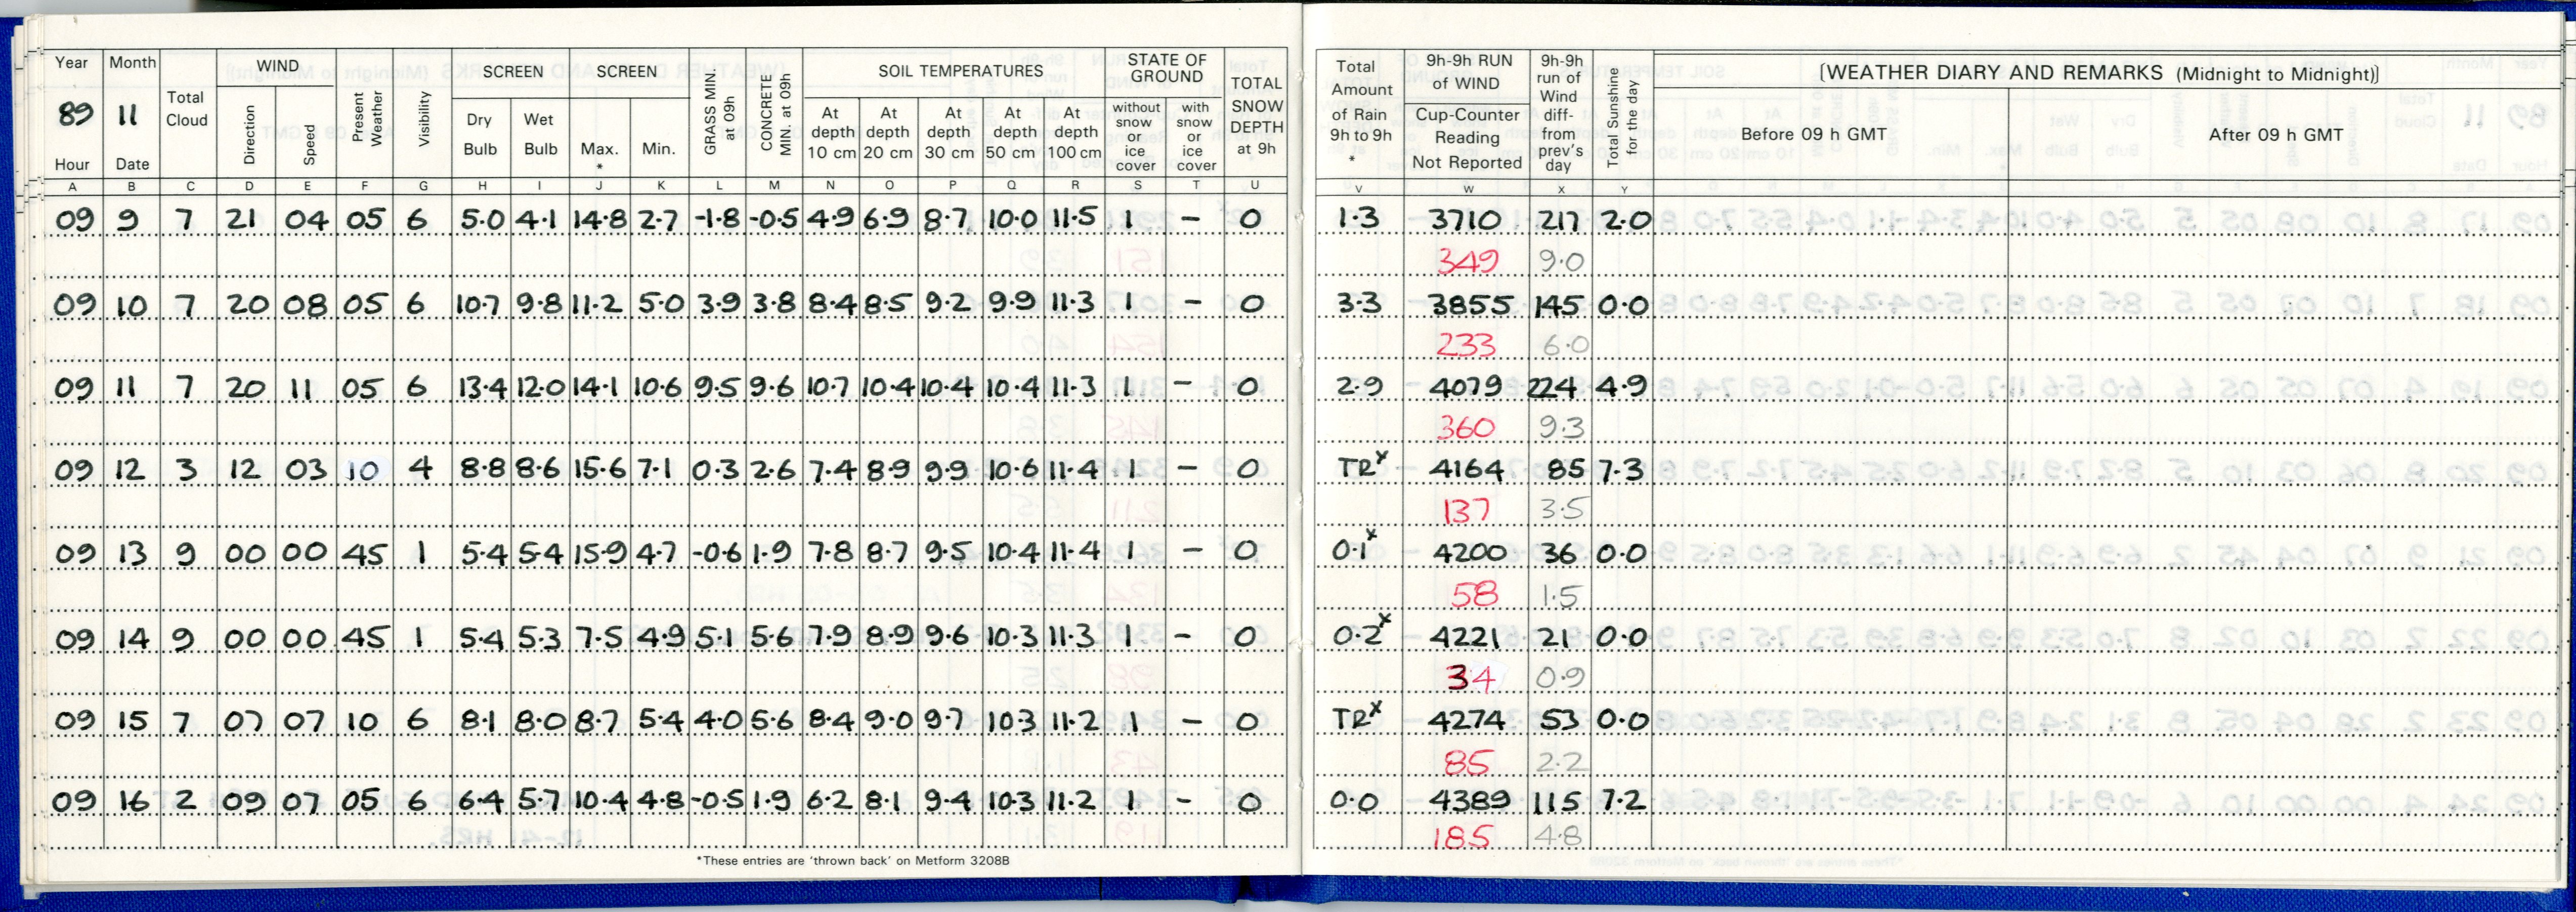 Year Month Total Cloud WIND Present Weather Visibility SCREEN SCREEN GRASS MIN. at 09h CONCRETE MIN. at 09h SOIL TEMPERATURES STATE OF GROUND TOTAL SNOW DEPTH at 9h
89 11 Direction Speed Dry Bulb Wet Bulb Max. * Min. At depth 10 cm At depth 20 cm At depth 30 cm At depth 50 cm At depth 100 cm without snow or ice cover with snow or ice cover
Hour Date
A B C D E F G H I J K L M N O P Q R S T U
09 9 7 21 04 05 6 5.0 4.1 14.8 2.7 -1.8 -0.5 4.9 6.9 8.7 10.0 11.5 1 - 0
09 10 7 20 08 05 6 10.7 9.8 11.2 5.0 3.9 3.8 8.4 8.5 9.2 9.9 11.3 1 - 0
09 11 7 20 11 05 6 13.4 12.0 14.1 10.6 9.5 9.6 10.7 10.4 10.4 10.4 11.3 1 - 0
09 12 3 12 03 10 4 8.8 8.6 15.6 7.1 0.3 2.6 7.4 8.9 9.9 10.6 11.4 1 - 0
09 13 9 00 00 45 1 5.4 5.4 15.9 4.7 -0.6 1.9 7.8 8.7 9.5 10.4 11.4 1 - 0
09 14 9 00 00 45 1 5.4 5.3 7.5 4.9 5.1 5.6 7.9 8.9 9.6 10.3 11.3 1 - 0
09 15 7 07 07 10 6 8.1 8.0 8.7 5.4 4.0 5.6 8.4 9.0 9.7 10.3 11.2 1 - 0
09 16 2 09 07 05 6 6.4 5.7 10.4 4.8 -0.5 1.9 6.2 8.1 9.4 10.3 11.2 1 - 0
*These entries are 'thrown back' on Metform 3208B
Total Amount of Rain 9h to 9h * 9h-9h RUN of WIND Cup-Counter Reading Not Reported 9h-9h run of Wind diff- from prev's day Total Sunshine for the day [WEATHER DIARY AND REMARKS (Midnight to Midnight)]
Before 09 h GMT After 09 h GMT
V W X Y
1.3 3710 217 2.0
349 9.0
3.3 3855 145 0.0
233 6.0
2.9 4079 224 4.9
360 9.3
TRx 4164 85 7.3
137 3.5
0.1x 4200 36 0.0
58 1.5
0.2x 4221 21 0.0
34 0.9
TRx 4274 53 0.0
85 2.2
0.0 4389 115 7.2
185 4.8